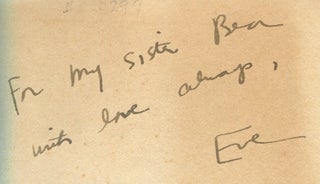 For my sister Bea
with love always,
Eve